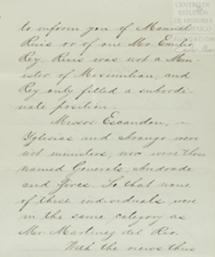 CENTRO DE
ESTUDIOS
DE HISTORIA
DE MEXICO
to inform you of Manuel
Ruis or of one Mr. Emilio
Rey. Ruis was not a Min-
ister of Maximilian, and
Rey only filled a subordi-
nate position.
Messrs Escandon,
Yglesias and Arango were
not ministers, nor were those
named Generals, Andrade
and . So that none
of these individuals were
in the same category as
Mr. Martinez del Rio.
With the views thus